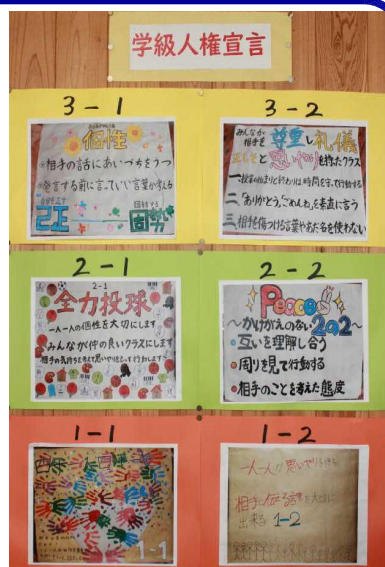 学級人権宣言
3-1
個性
相手の話にあいづちをうつ
発言する前に言っていい言葉か考える
3-2
みんなが
相手を尊重し礼儀
正しさと思いやりを持ったクラス
一、授業の始まりと終わりは時間を守って行動する
二、「ありがとう、ごめんね」を素直に言う
三、相手を傷つける言葉やあだ名を使わない
2-1
2-1
全力投球
一人一人の個性を大切にします
みんなが仲の良いクラスにします
相手の気持ちを考えて思いやりをもって行動します
2-2
Peace
～かけがえのない2の2～
互いを理解し合う
周りを見て行動する
相手のことを考えた態度
1-1
1-1
1-2
一人一人が思いやりをもち
相手に伝える言葉を大切に
出来る 1-2